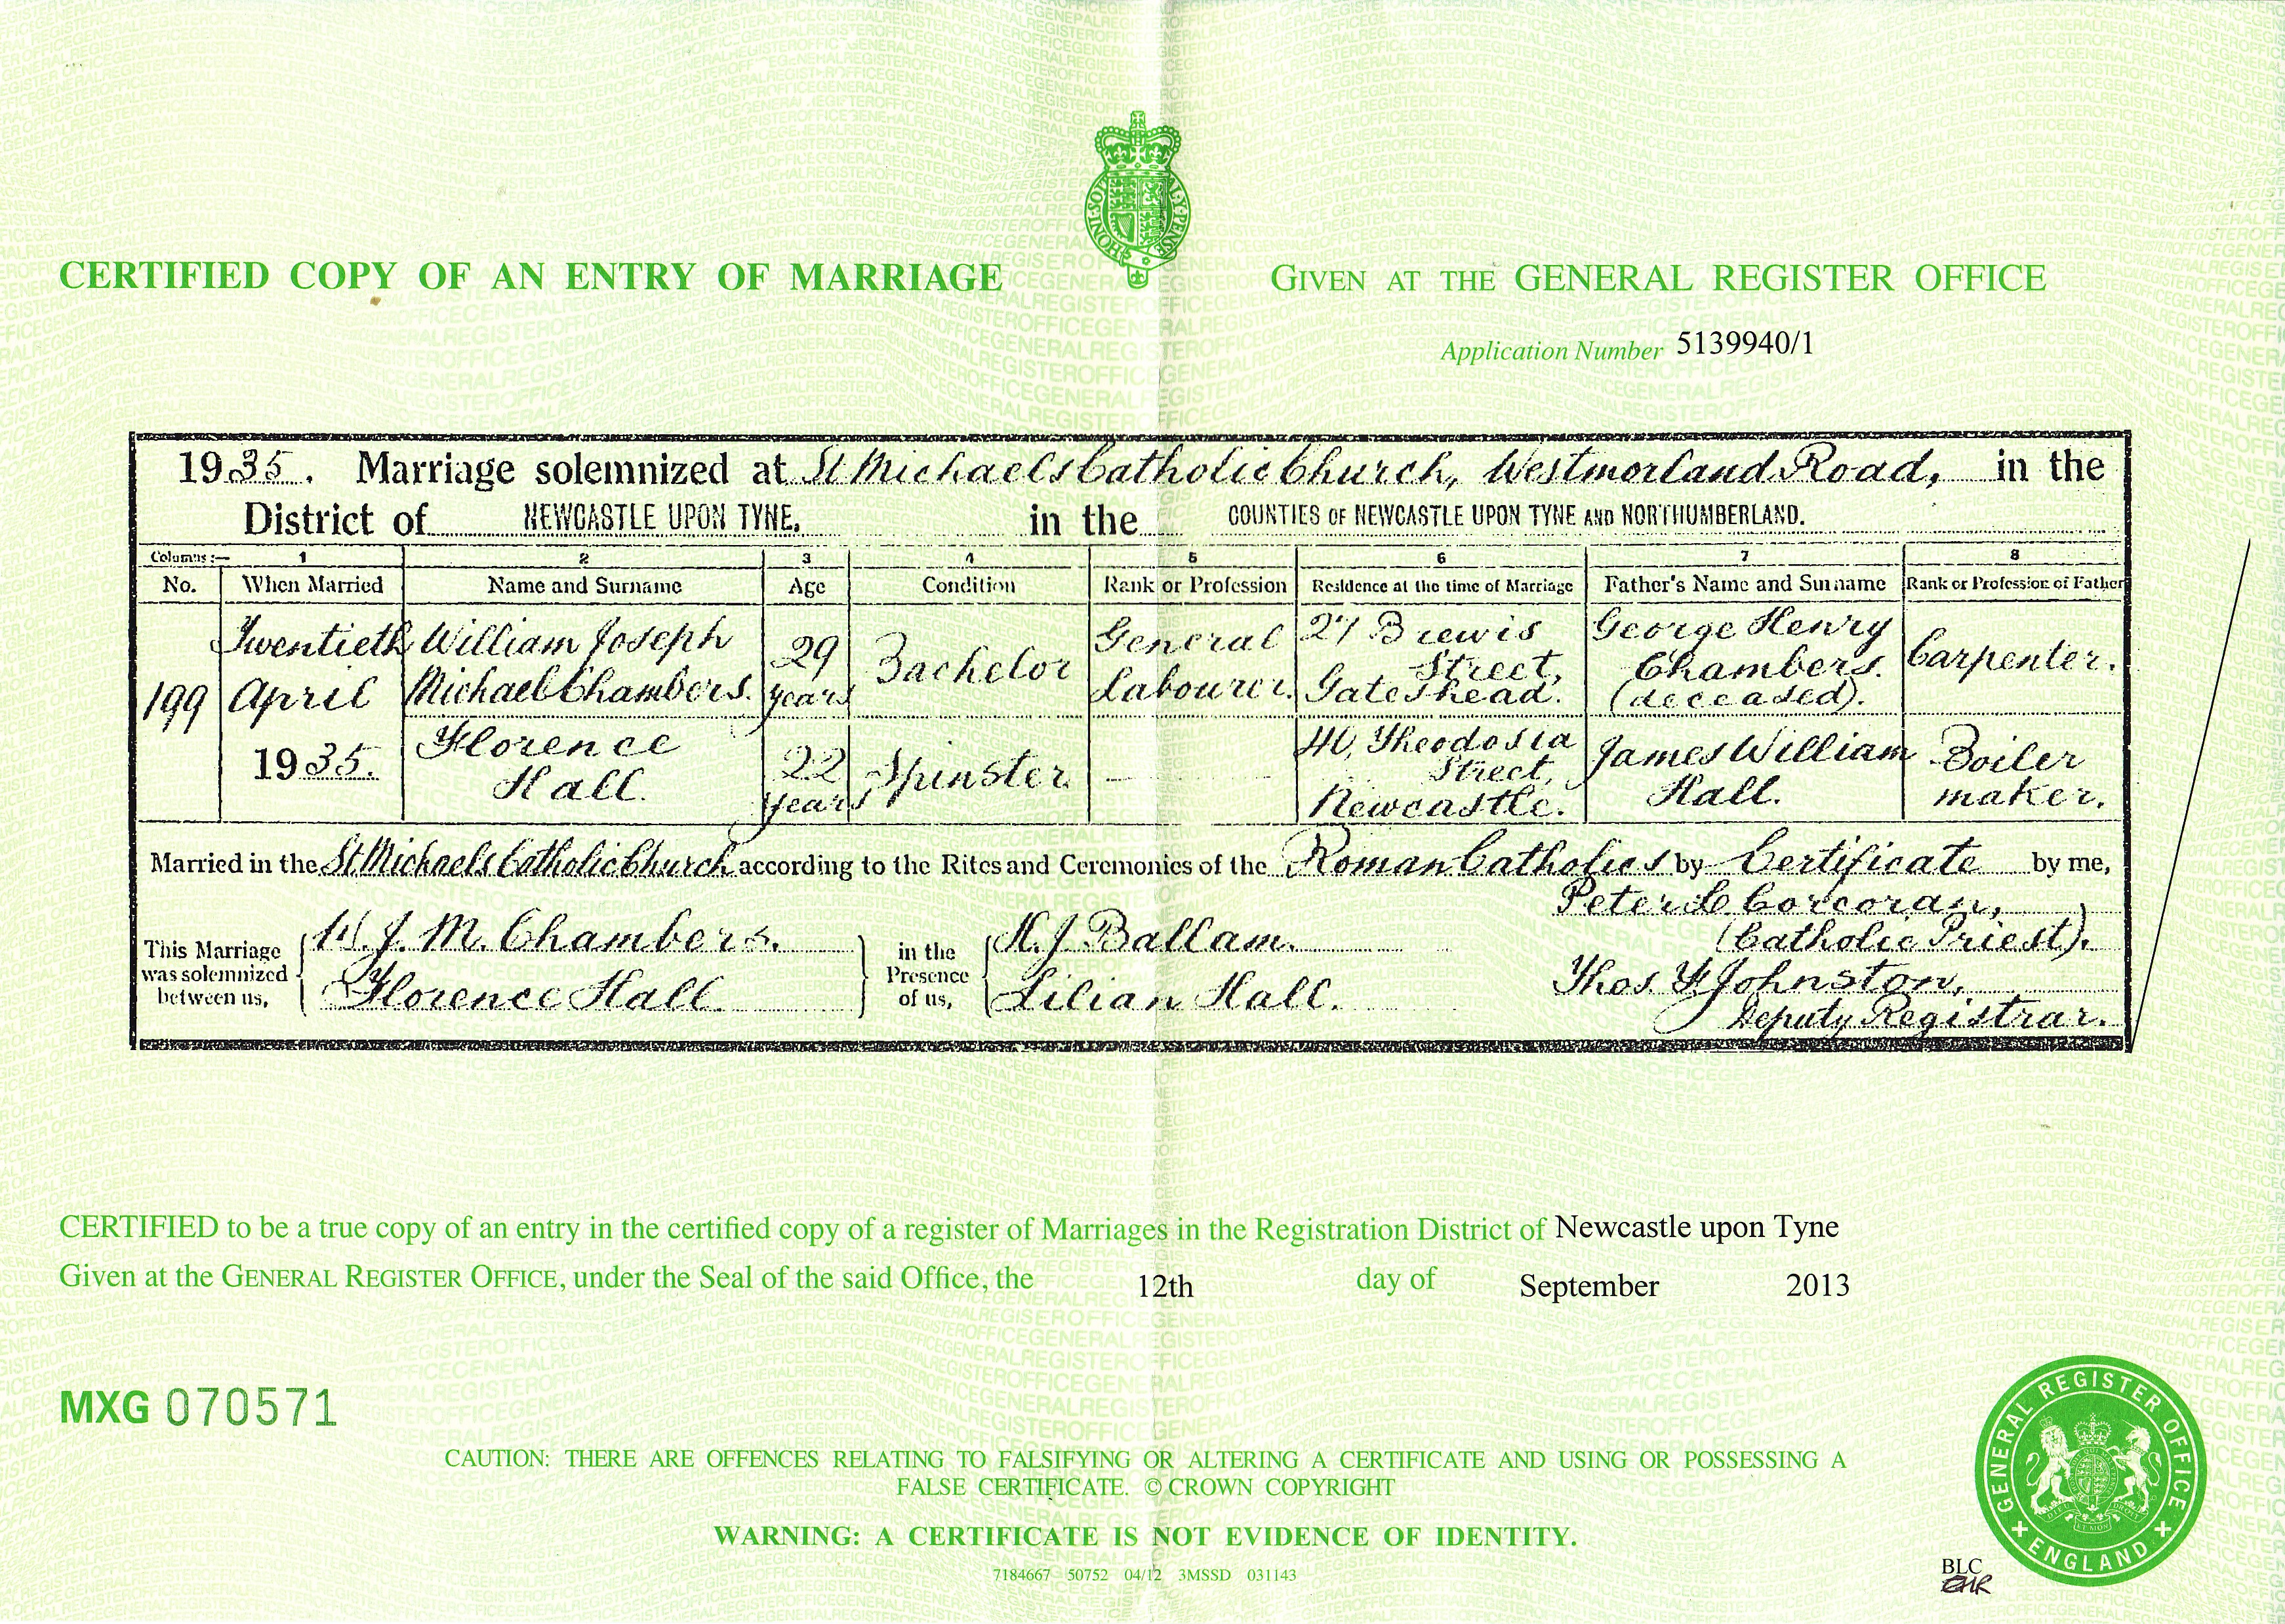 CERTIFIED COPY OF AN ENTRY OF MARRIAGE
GIVEN AT THE GENERAL REGISTER OFFICE
Application Number 5139940/1
1935. Marriage solemnized at St Michaels Catholic Church, Westmorland Road, in the
District of NEWCASTLE UPON TYNE. in the COUNTIES OF NEWCASTLE UPON TYNE AND NORTHUMBERLAND.
Columns:— 1 2 3 4 5 6 7 8
No. When Married Name and Surname Age Condition Rank or Profession Residence at the time of Marriage Father's Name and Surname Rank or Profession of Father
199
Twentieth
April
1935.
William Joseph
Michael Chambers.
29
years
Bachelor
General
Labourer.
27 Brewis
Street,
Gateshead.
George Henry
Chambers.
(deceased).
Carpenter.
Florence
Hall.
22
years
Spinster
—
40, Theodosia
Street,
Newcastle.
James William
Hall.
Boiler
maker.
Married in the St Michaels Catholic Church according to the Rites and Ceremonies of the Roman Catholics by Certificate by me,
This Marriage
was solemnized
between us,
W. J. M. Chambers.
Florence Hall.
in the
Presence
of us,
Ballam.
Lilian Hall.
Peter Corcoran,
(Catholic Priest).
Thos. F. Johnston,
Deputy Registrar.
CERTIFIED to be a true copy of an entry in the certified copy of a register of Marriages in the Registration District of Newcastle upon Tyne
Given at the GENERAL REGISTER OFFICE, under the Seal of the said Office, the 12th day of September 2013
MXG 070571
CAUTION: THERE ARE OFFENCES RELATING TO FALSIFYING OR ALTERING A CERTIFICATE AND USING OR POSSESSING A
FALSE CERTIFICATE. © CROWN COPYRIGHT
WARNING: A CERTIFICATE IS NOT EVIDENCE OF IDENTITY.
7184667 50752 04/12 3MSSD 031143
GENERAL REGISTER OFFICE
ENGLAND
BLC